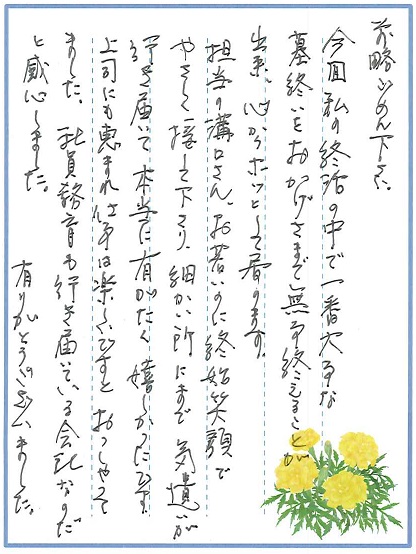 前略ごめん下さい。
今回私の終活の中で一番大事な
墓終いをおかげさまで無事終えることが
出来、心からホッとして居ります。
担当の溝口さん、お若いのに終始笑顔で
やさしく接して下さり、細かい所にまで気遣いが
行き届いて本当に有がたく嬉しかったです。
上司にも恵まれ仕事は楽しいですとおっしゃって
ました。社員教育も行き届いている会社なのだ
と感心しました。
有りがとうございました。